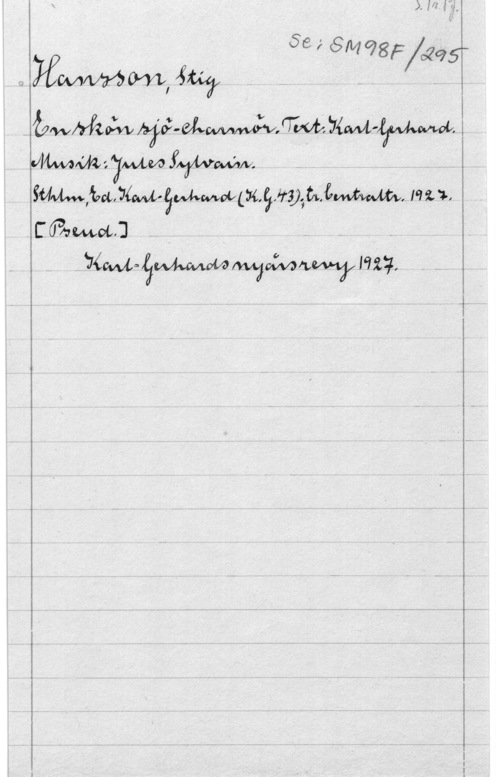 S. tr. Pf.
Se: SM98F/295
Hansson, Stig
En skön sjö-charmör. Text: Karl-Gerhard.
Musik: Jules Sylvain.
Sthlm, Ed. Karl-Gerhard (K.G.43); tr. Centraltr. 1927.
[Pseud.]
Karl-Gerhards nyårsrevy 1927.